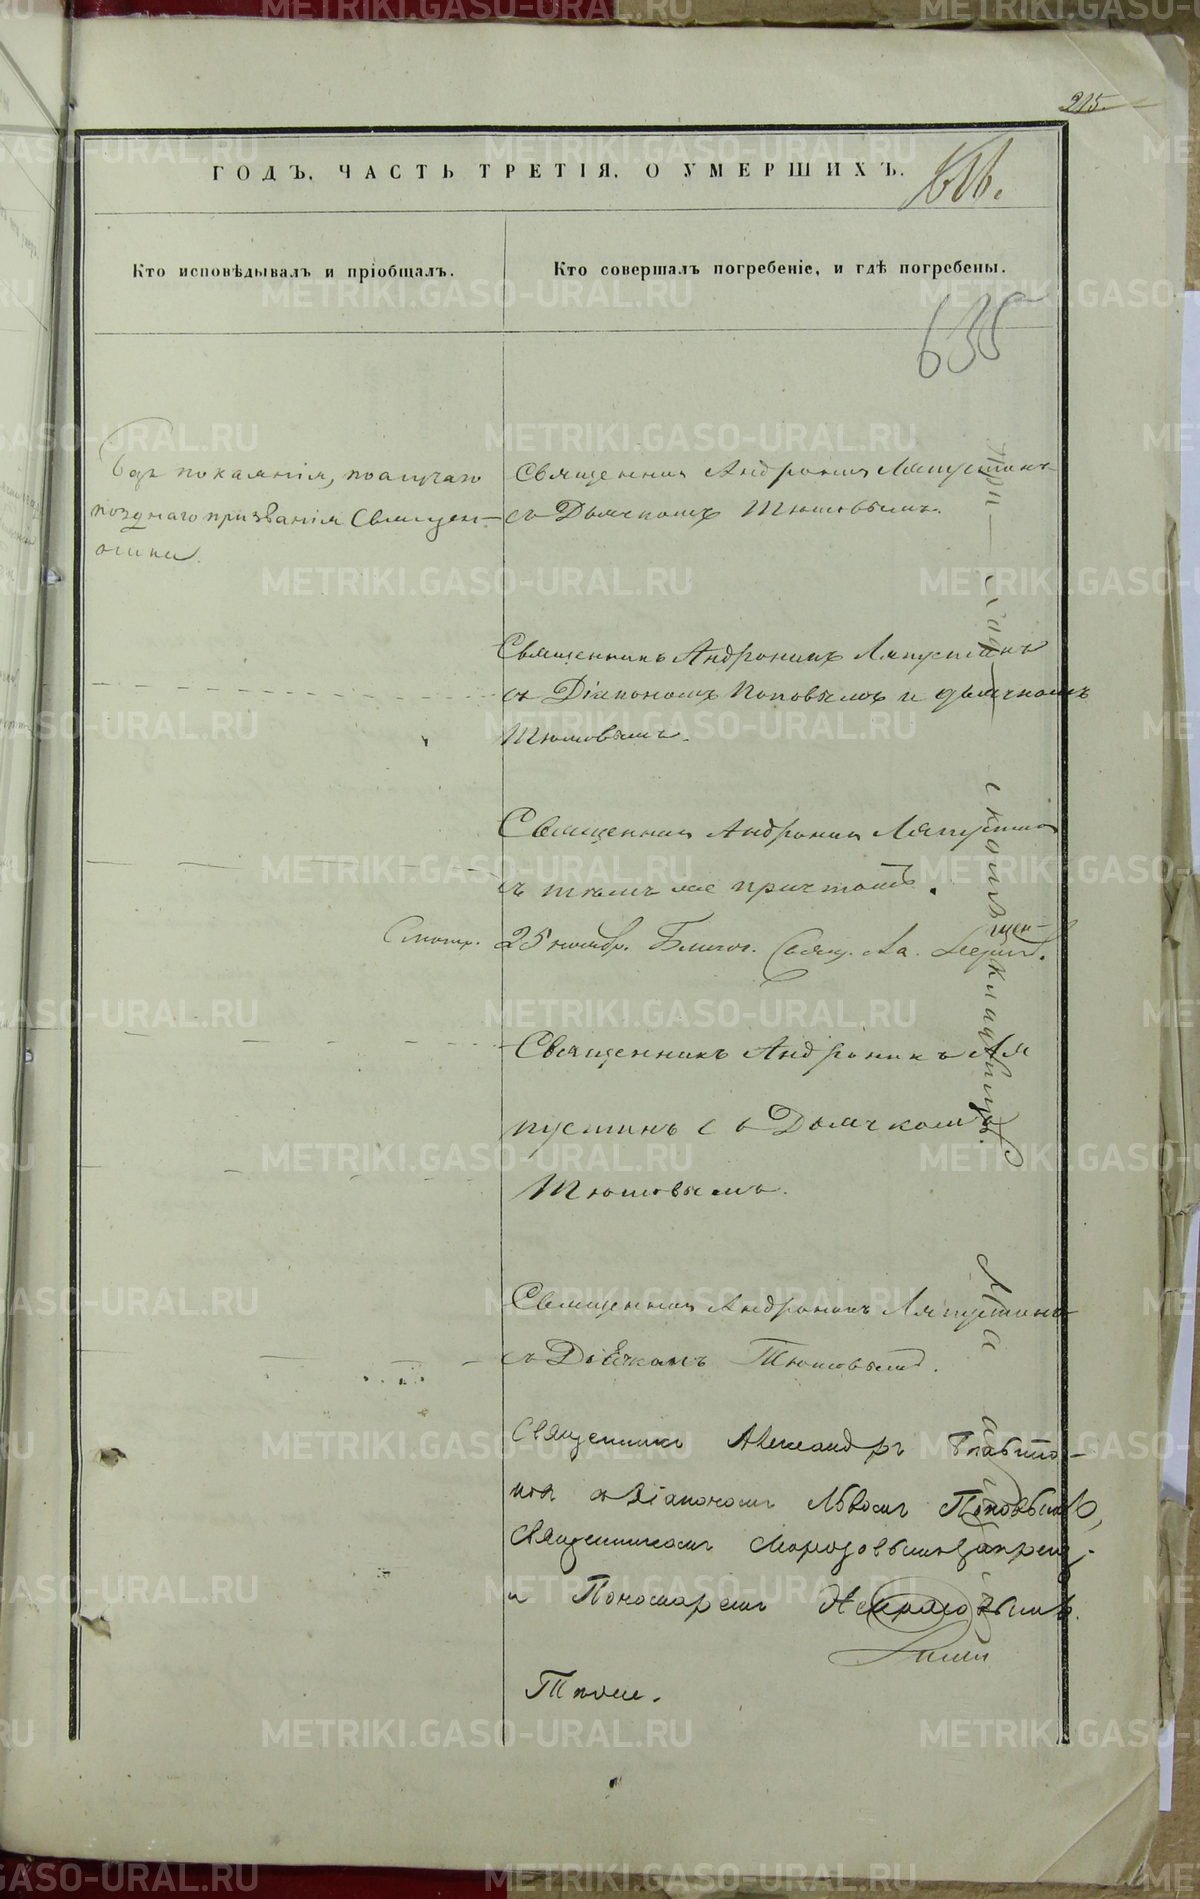 215.
ГОДЪ. ЧАСТЬ ТРЕТІЯ. О УМЕРШИХЪ.
Кто исповѣдывалъ и пріобщалъ.
Кто совершалъ погребеніе, и гдѣ погребены.
635
Безъ покаянія, по случаю
позднаго призванія Священ-
ника.
Священникъ Андроникъ Ляпустинъ
съ Дьячкомъ Тютовымъ.
Священникъ Андроникъ Ляпустинъ
съ Діакономъ Поповымъ и дьячкомъ
Тютовымъ.
Священникъ Андроникъ Ляпустинъ
съ тѣмъ же причтомъ.
Смотр. 25 ноябр. Благоч. Свящ.
Священникъ Андроникъ Ля
пустинъ съ Дьячкомъ
Тютовымъ.
Священникъ Андроникъ Ляпустинъ
съ Дьячкомъ Тютовымъ.
Священникъ Александръ
съ Діакономъ Львомъ Поповымъ,
Священникомъ
и Пономаремъ
Тѣже.
При
священникъ
METRIKI.GASO-URAL.RU